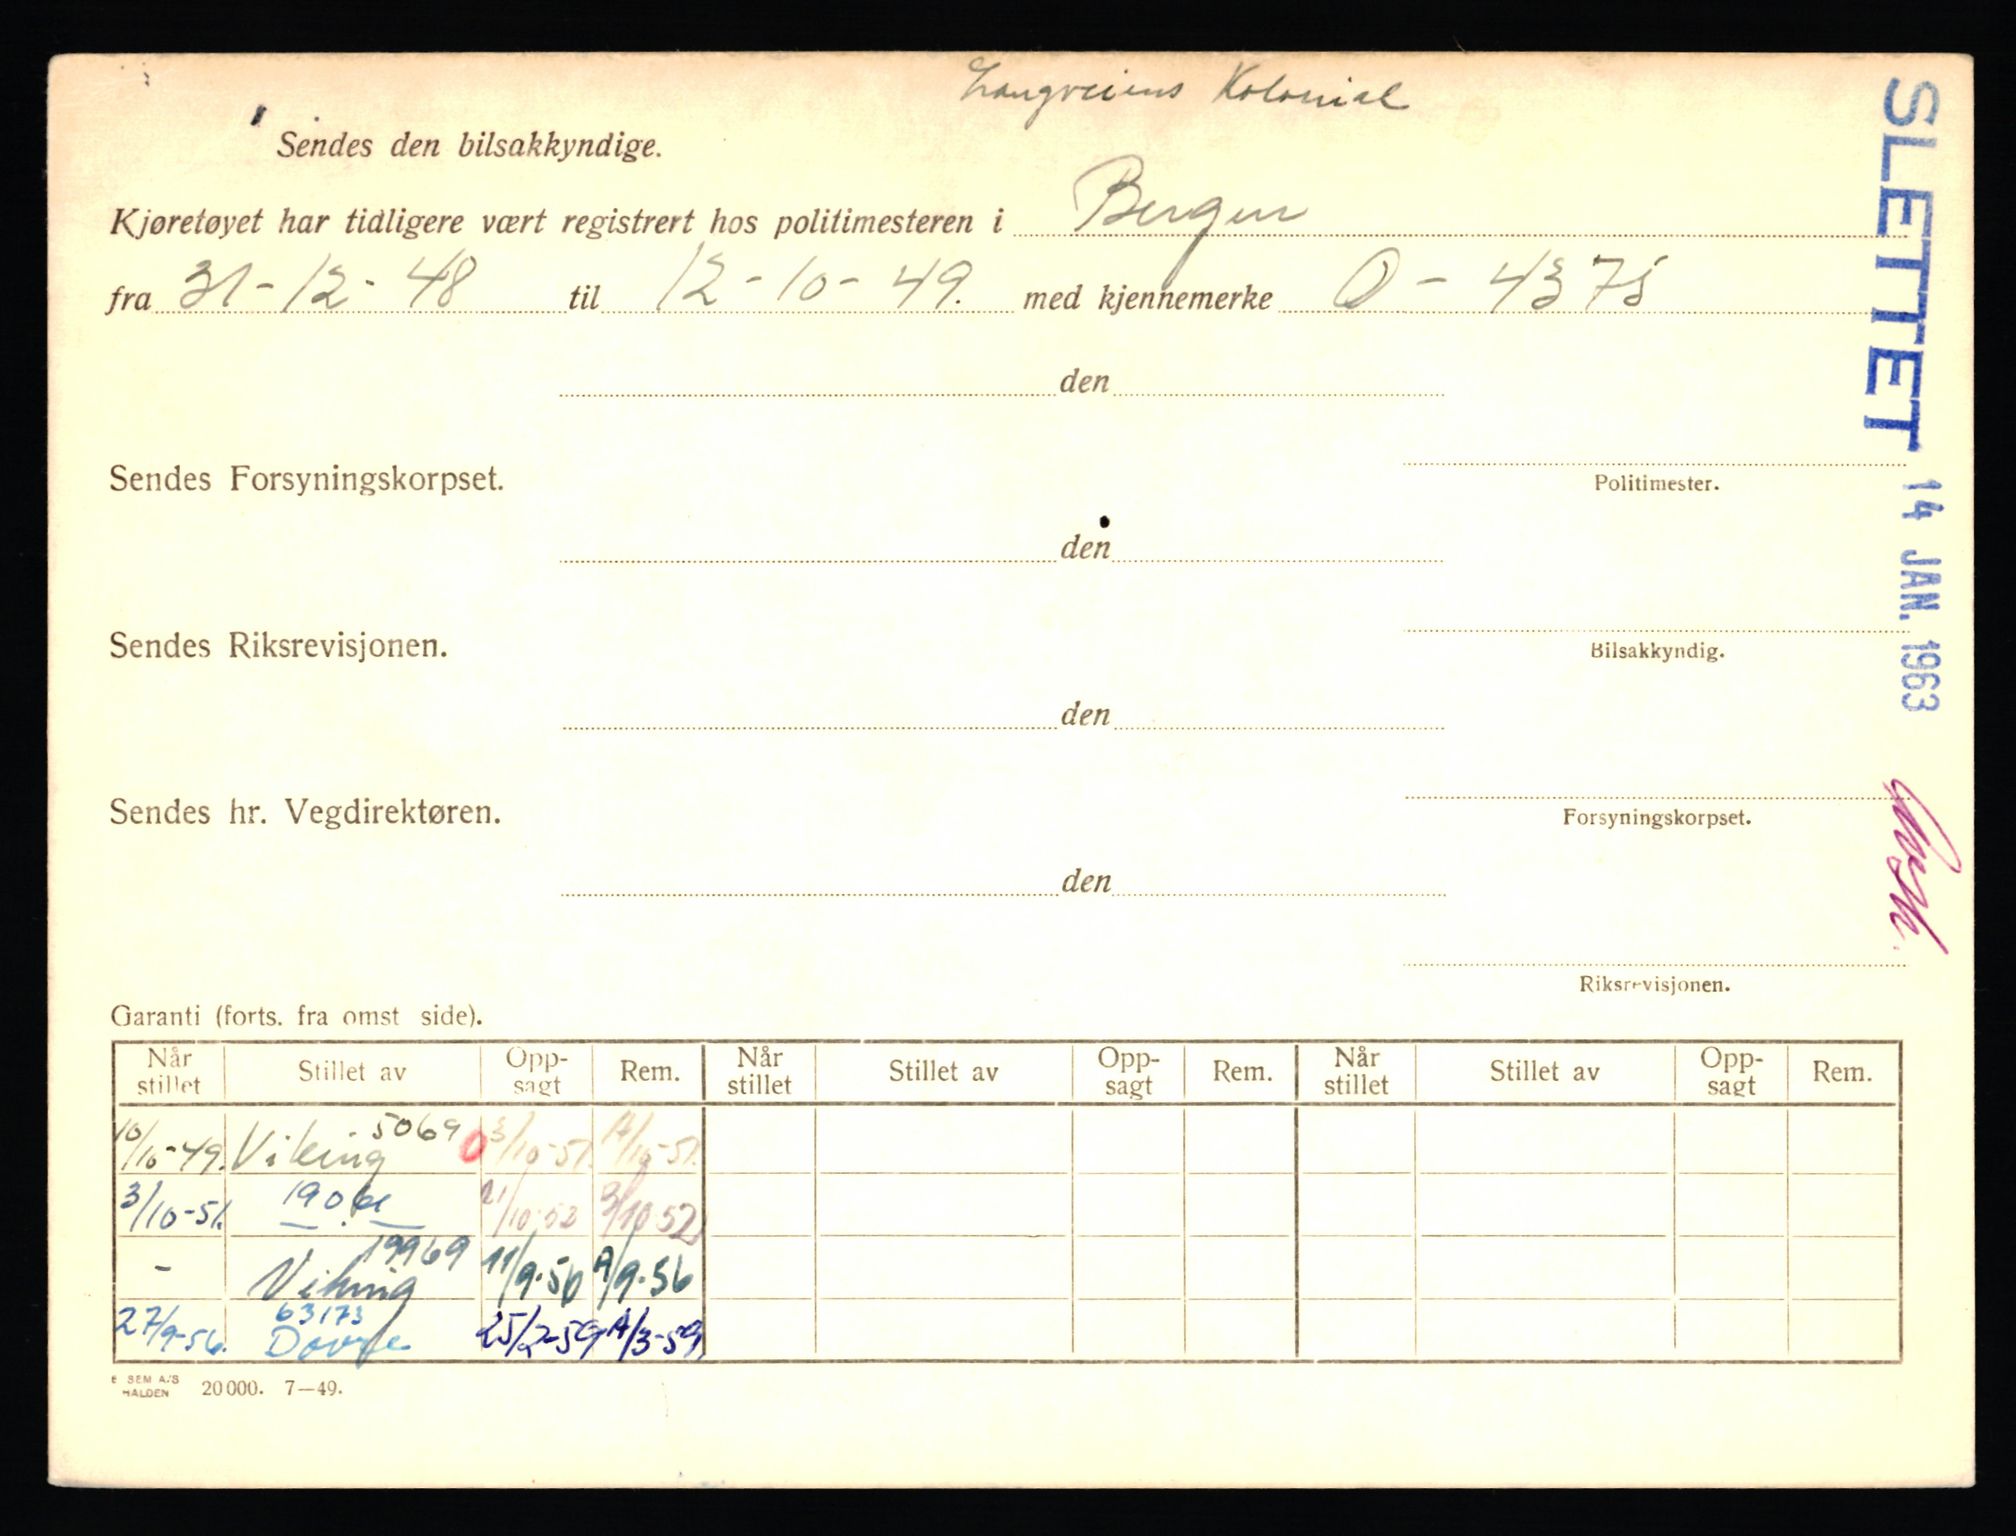 Langveiens Kolonial
Sendes den bilsakkyndige.
Kjøretøyet har tidligere vært registrert hos politimesteren i Bergen
fra 31-12-48 til 12-10-49. med kjennemerke O-4375
den
Sendes Forsyningskorpset.
Politimester.
den
Sendes Riksrevisjonen.
Bilsakkyndig.
den
Sendes hr. Vegdirektøren.
Forsyningskorpset.
den
Riksrevisjonen.
SLETTET 14 JAN. 1963
Garanti (forts. fra omst side).
Når stillet Stillet av Opp-sagt Rem. Når stillet Stillet av Opp-sagt Rem. Når stillet Stillet av Opp-sagt Rem.
10/10-49. Viking 5069 3/10-51. A/10-51.
3/10-51. 21/10-52 3/10 52
- Viking 19969 11/9-56 A/9-56
27/9-56. 63173 Dovre 25/2-59 A/3-59
E SEM A/S HALDEN 20000. 7—49.